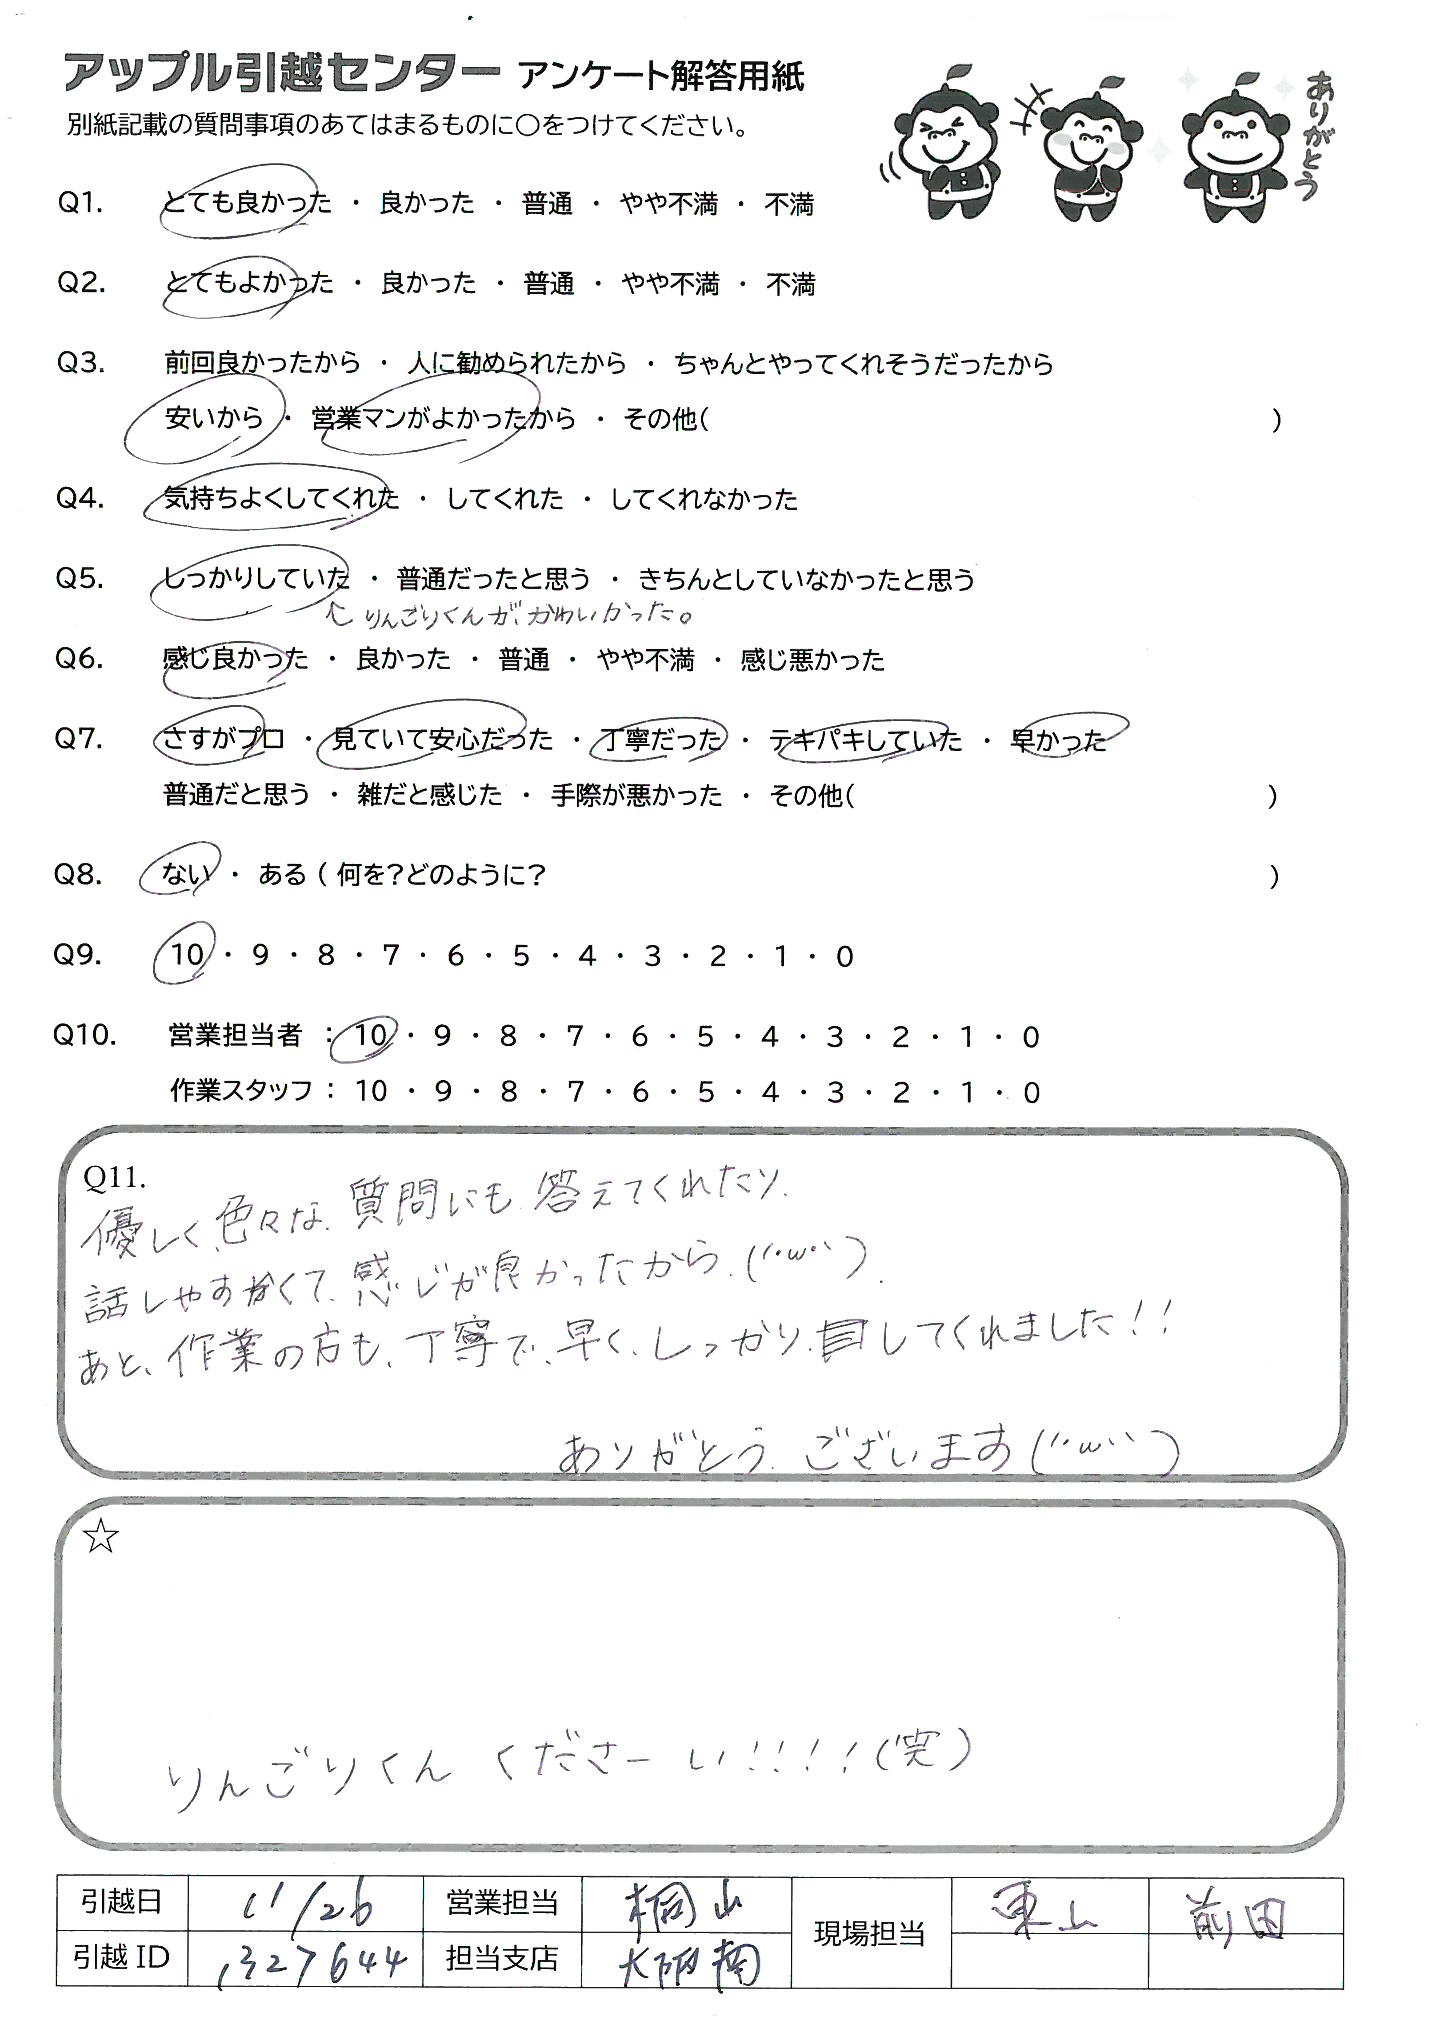 アップル引越センター アンケート解答用紙
別紙記載の質問事項のあてはまるものに○をつけてください。
ありがとう
Q1. とても良かった ・ 良かった ・ 普通 ・ やや不満 ・ 不満
Q2. とてもよかった ・ 良かった ・ 普通 ・ やや不満 ・ 不満
Q3. 前回良かったから ・ 人に勧められたから ・ ちゃんとやってくれそうだったから
安いから ・ 営業マンがよかったから ・ その他( )
Q4. 気持ちよくしてくれた ・ してくれた ・ してくれなかった
Q5. しっかりしていた ・ 普通だったと思う ・ きちんとしていなかったと思う
↑ りんごりくんが、かわいかった。
Q6. 感じ良かった ・ 良かった ・ 普通 ・ やや不満 ・ 感じ悪かった
Q7. さすがプロ ・ 見ていて安心だった ・ 丁寧だった ・ テキパキしていた ・ 早かった
普通だと思う ・ 雑だと感じた ・ 手際が悪かった ・ その他( )
Q8. ない ・ ある ( 何を?どのように? )
Q9. 10 ・ 9 ・ 8 ・ 7 ・ 6 ・ 5 ・ 4 ・ 3 ・ 2 ・ 1 ・ 0
Q10. 営業担当者 : 10 ・ 9 ・ 8 ・ 7 ・ 6 ・ 5 ・ 4 ・ 3 ・ 2 ・ 1 ・ 0
作業スタッフ : 10 ・ 9 ・ 8 ・ 7 ・ 6 ・ 5 ・ 4 ・ 3 ・ 2 ・ 1 ・ 0
Q11.
優しく、色々な、質問にも、答えてくれたり、
話しやすくて、感じが良かったから、(´･ω･`)、
あと、作業の方も、丁寧で、早く、しっかり、してくれました!!
ありがとう、ございます(´･ω･`)
☆
りんごりくん くださーい!!!!(笑)
引越日 11/26 営業担当 桐山 現場担当 東山 前田
引越ID 1327644 担当支店 大阪南